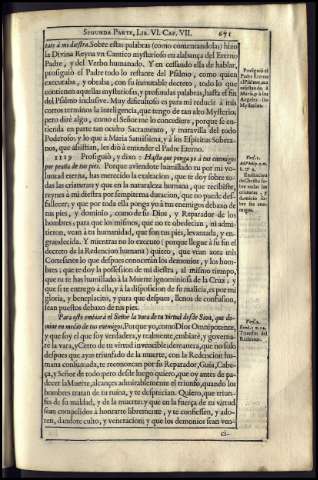 SEGUNDA PARTE, LIB. VI. CAP. VII. 671
tate à mi diestra. Sobre estas palabras (como comentandolas) hizo
la Divina Reyna un Cantico mysterioso en alabança del Eterno
Padre, y del Verbo humanado. Y en cessando ella de hablar,
prosiguiò el Padre todo lo restante del Psalmo, como quien
executaba, y obraba, con su inviolable decreto, todo lo que
contienen aquellas mysteriosas, y profundas palabras, hasta el fin
del Psalmo inclusive. Muy dificultoso es para mi reducir à mis
cortos terminos la inteligencia, que tengo de tan alto Mysterio,
pero dirè algo, como el Señor me lo concediere, porque se en-
tienda en parte tan oculto Sacramento, y maravilla del todo
Poderoso, y lo que à Maria Santissima, y à los Espiritus Sobera-
nos, que assistian, les diò à entender el Padre Eterno.
1119 Prosiguiò, y dixo: Hasta que ponga yo à tus enemigos
por peaña de tus pies. Porque aviendote humillado tu por mi vo-
luntad eterna, has merecido la exaltacion, que te doy sobre to-
das las criaturas; y que en la naturaleza humana, que recibiste,
reynes à mi diestra por sempiterna duracion, que no puede des-
fallecer; y que por toda ella ponga yo à tus enemigos debaxo de
tus pies, y dominio, como de su Dios, y Reparador de los
hombres: para que los mismos, que no te obedecieron, ni admi-
tieron, vean à tu humanidad, que son tus pies, levantada, y en-
grandecida. Y mientras no lo executo (porque llegue à su fin el
decreto de la Redencion humana) quiero, que vean aora mis
Cortesanos lo que despues conoceràn los demonios, y los hom-
bres: que te doy la possession de mi diestra, al mismo tiempo,
que tu te has humillado à la Muerte Ignominiosa de la Cruz; y
que si te entrego à ella, y à la disposicion de su malicia, es por mi
gloria, y beneplacito, y para que despues, llenos de confusion,
sean puestos debaxo de tus pies.
Para esto embiarà el Señor la vara de tu Virtud desde Sion, que do-
mine en medio de tus enemigos. Porque yo, como Dios Omnipotente,
y que soy el que soy verdadera, y realmente, embiarè, y governa-
rè la vara, y Cetro de tu virtud invencible: de manera, que no solo
despues que ayas triunfado de la muerte, con la Redencion hu-
mana consumada, te reconozcan por su Reparador, Guia, Cabe-
ça, y Señor de todo; pero desde luego quiero, que oy antes de pa-
decer la Muerte, alcances admirablemente el triunfo, quando los
hombres tratan de tu ruina, y te desprecian. Quiero, que triun-
fes de su maldad, y de la muerte; y que en la fuerça de tu virtud
sean compelidos à honrarte libremente, y te confiessen, y ado-
ren, dandote culto, y veneracion; y que los demonios sean ven-
ci-
Prosiguiò el
Padre Eterno